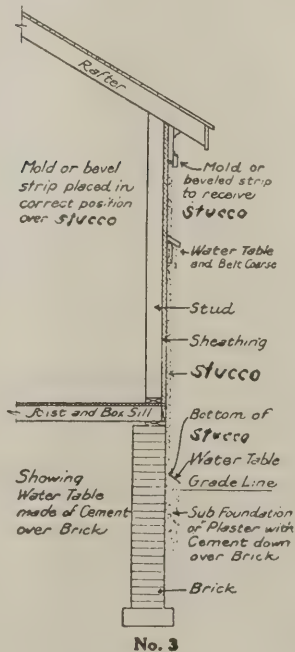 Rafter
Mold or bevel
strip placed in
correct position
over stucco
Mold or
beveled strip
to receive
Stucco
Water Table
and Belt Coarse
Stud
Sheathing
Stucco
Joist and Box Sill
Bottom of
Stucco
Water Table
Grade Line
Showing
Water Table
made of Cement
over Brick
Sub Foundation
or Plaster with
Cement down
over Brick
Brick
No. 3